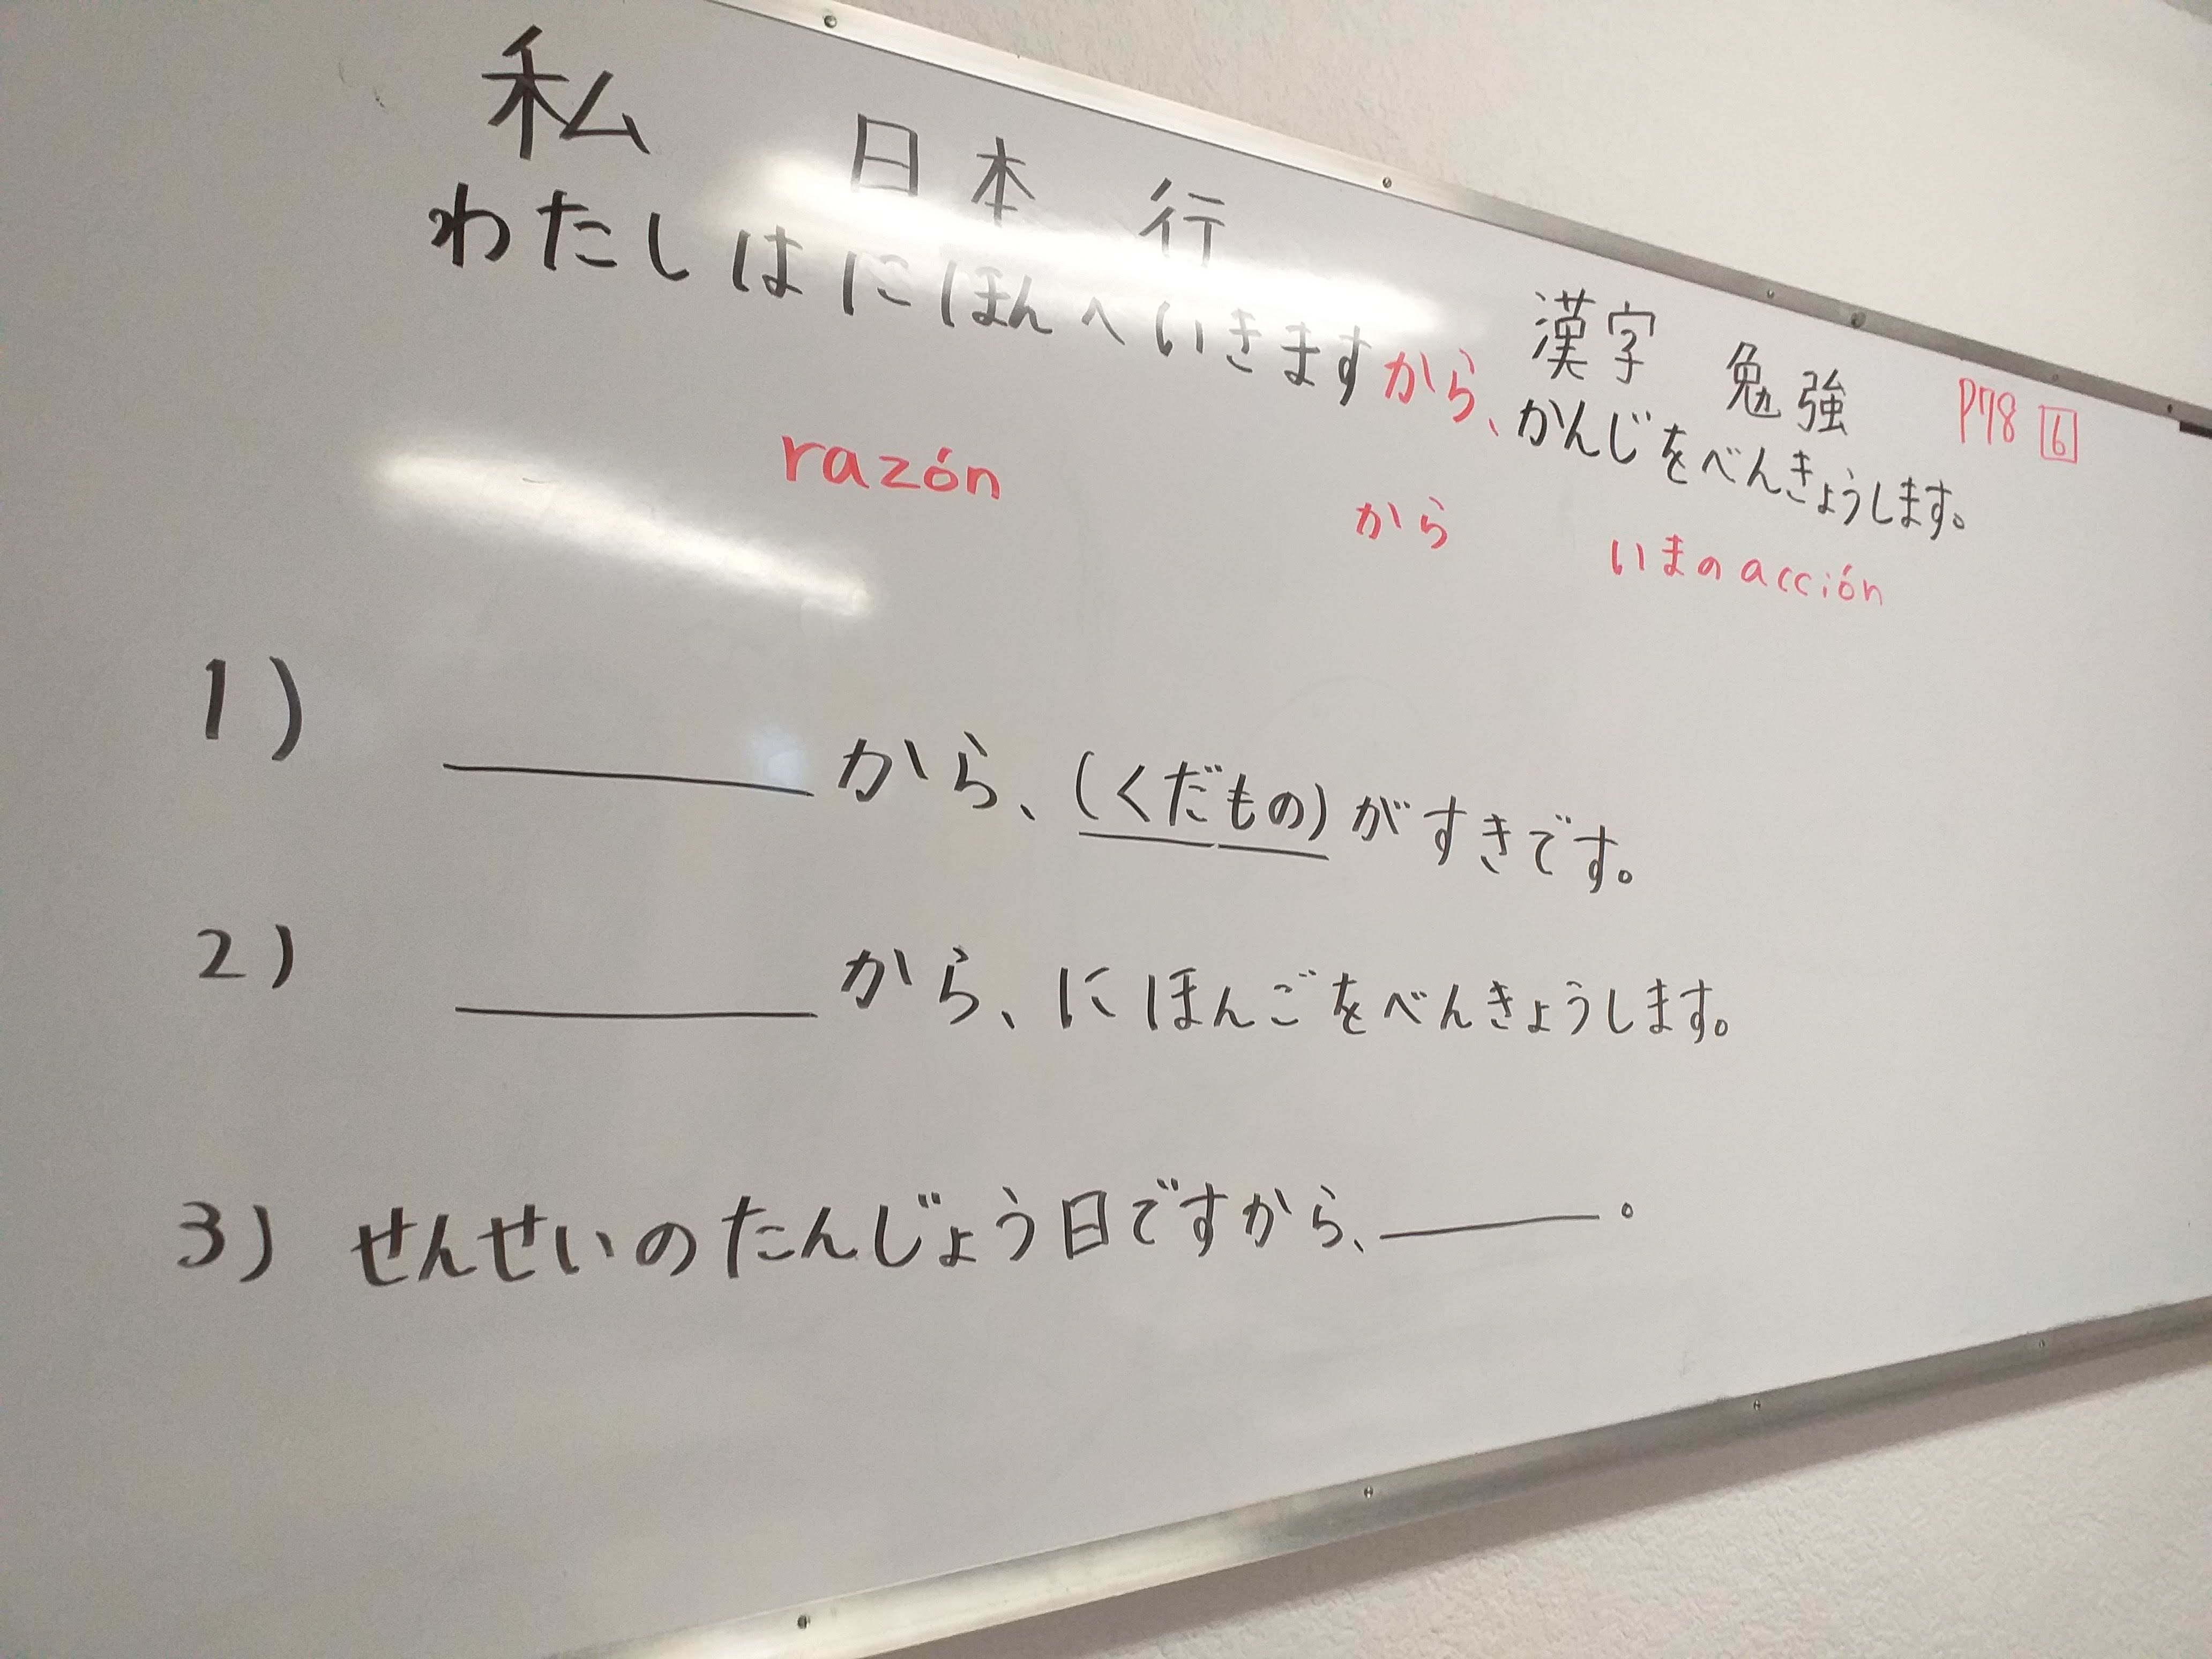 私 日本 行 漢字 勉強 P78 6
わたしはにほんへいきますから、かんじをべんきょうします。
razón から いまのacción
1) ______から、(くだもの)がすきです。
2) ______から、にほんごをべんきょうします。
3) せんせいのたんじょう日ですから、______。